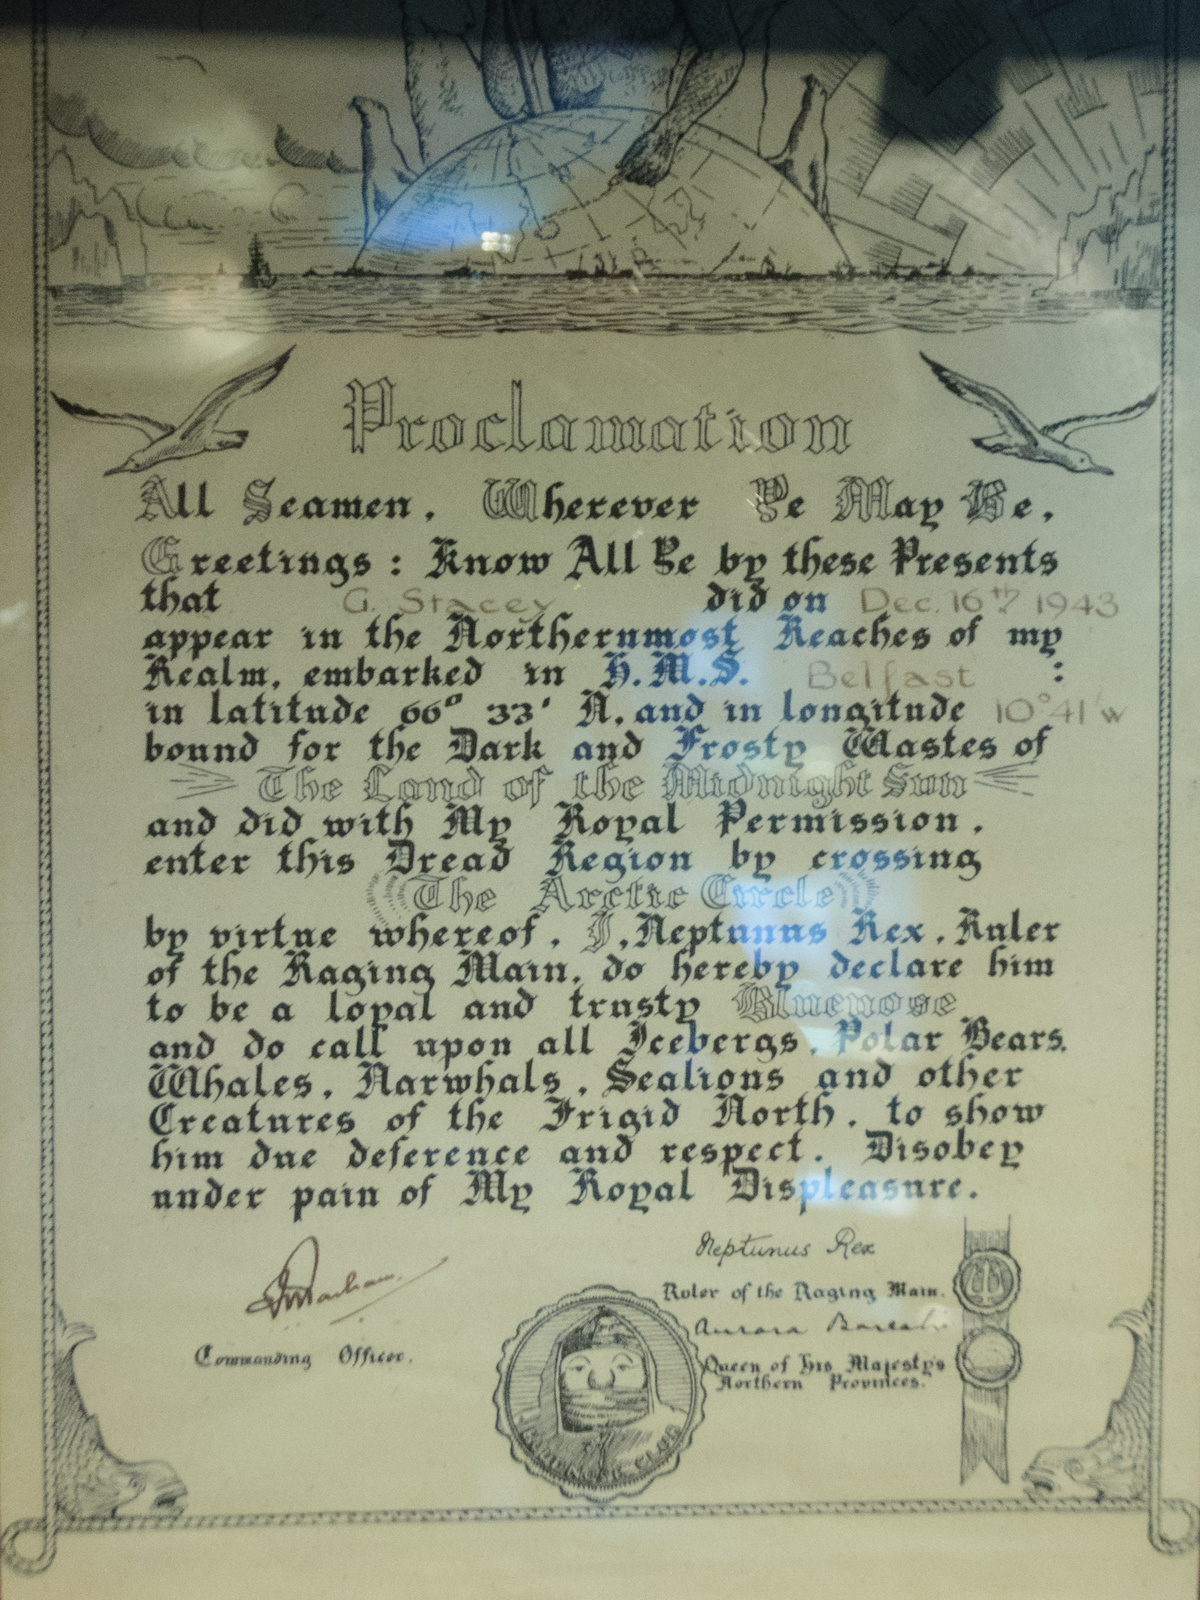 Proclamation
All Seamen, Wherever Ye May Be,
Greetings : Know All Ye by these Presents
that G. Stacey did on Dec. 16th 1943
appear in the Northernmost Reaches of my
Realm, embarked in H.M.S. Belfast :
in latitude 66° 33' N, and in longitude 10°41'W
bound for the Dark and Frosty Wastes of
The Land of the Midnight Sun
and did with My Royal Permission,
enter this Dread Region by crossing
The Arctic Circle
by virtue whereof, I, Neptunus Rex, Ruler
of the Raging Main, do hereby declare him
to be a loyal and trusty Bluenose
and do call upon all Icebergs, Polar Bears,
Whales, Narwhals, Sealions and other
Creatures of the Frigid North, to show
him due deference and respect. Disobey
under pain of My Royal Displeasure.
Neptunus Rex
Ruler of the Raging Main.
Aurora
Commanding Officer.
Queen of his Majesty's
Northern Provinces.
CLUB